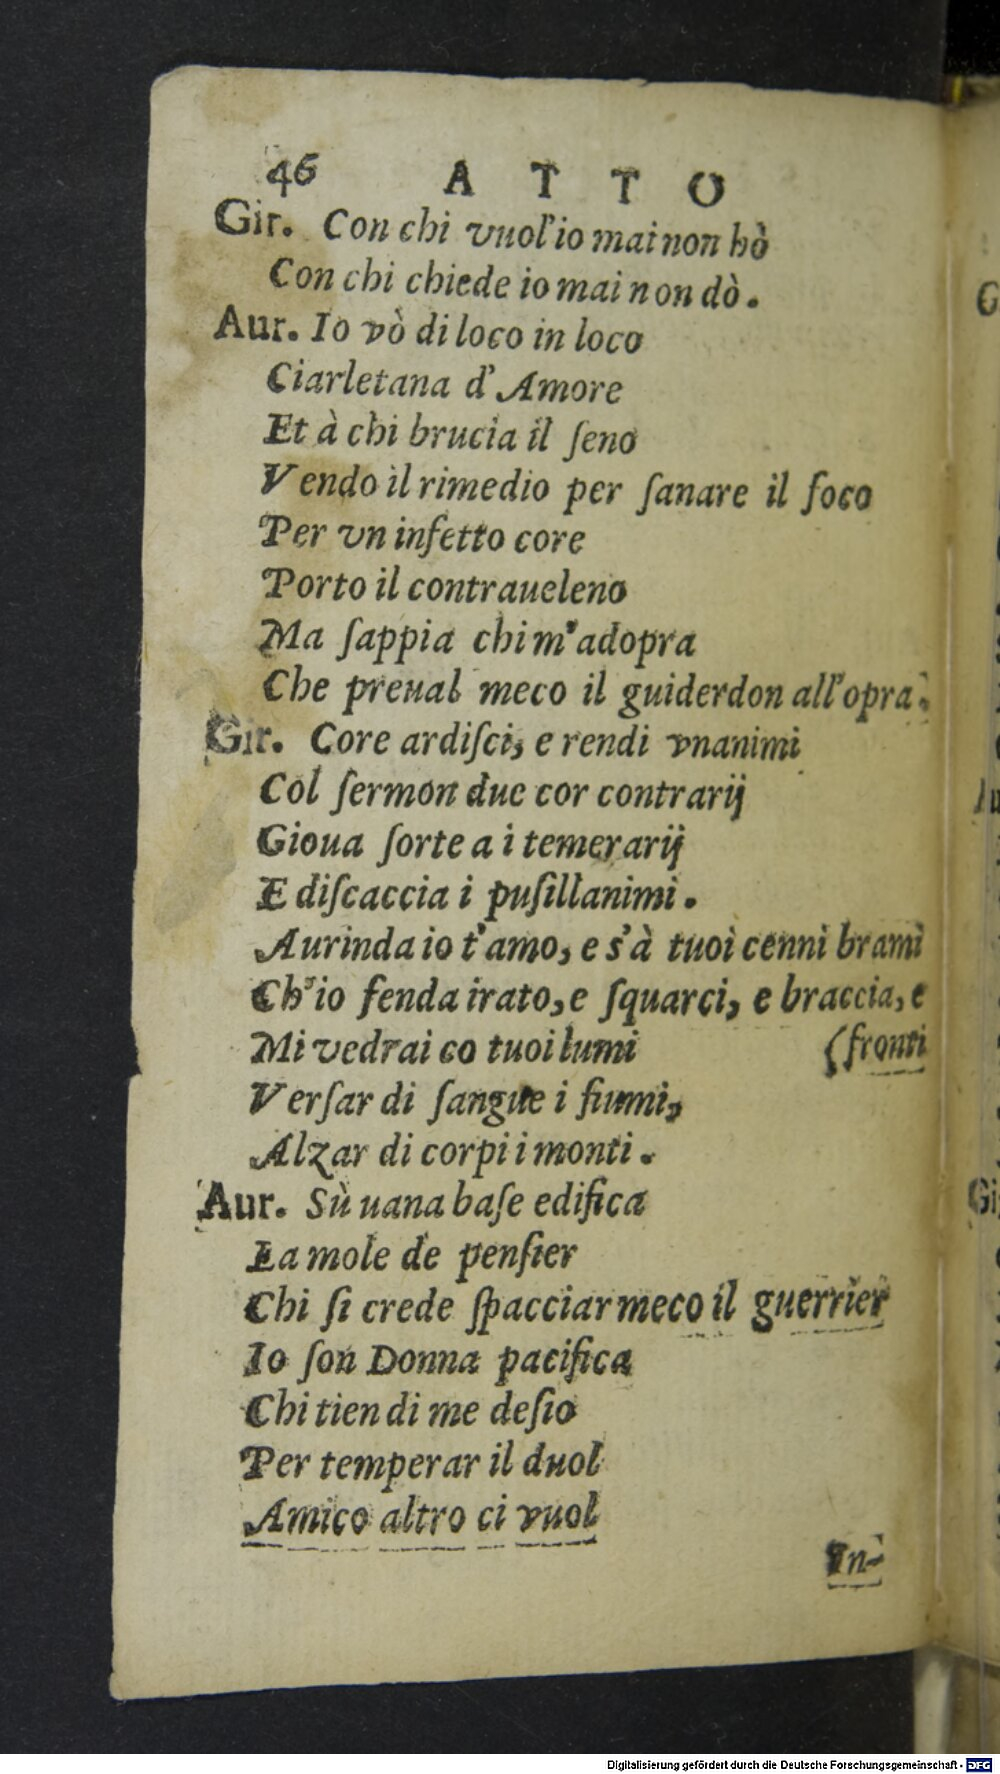 46 ATTO
Gir. Con chi vuol'io mai non hò
Con chi chiede io mai non dò.
Aur. Io vò di loco in loco
Ciarletana d'Amore
Et à chi brucia il ſeno
Vendo il rimedio per ſanare il foco
Per vn infetto core
Porto il contraueleno
Ma ſappia chi m'adopra
Che preual meco il guiderdon all'opra.
Gir. Core ardiſci, e rendi vnanimi
Col ſermon due cor contrarij
Gioua ſorte a i temerarij
E diſcaccia i puſillanimi.
Aurinda io t'amo, e s'à tuoi cenni brami
Ch'io fenda irato, e ſquarci, e braccia, e
Mi vedrai co tuoi lumi (fronti
Verſar di ſangue i fiumi,
Alzar di corpi i monti.
Aur. Sù uana baſe edifica
La mole de penſier
Chi ſi crede ſpacciar meco il guerrier
Io ſon Donna pacifica
Chi tien di me deſio
Per temperar il duol
Amico altro ci vuol
In-
Digitalisierung gefördert durch die Deutsche Forschungsgemeinschaft - DFG